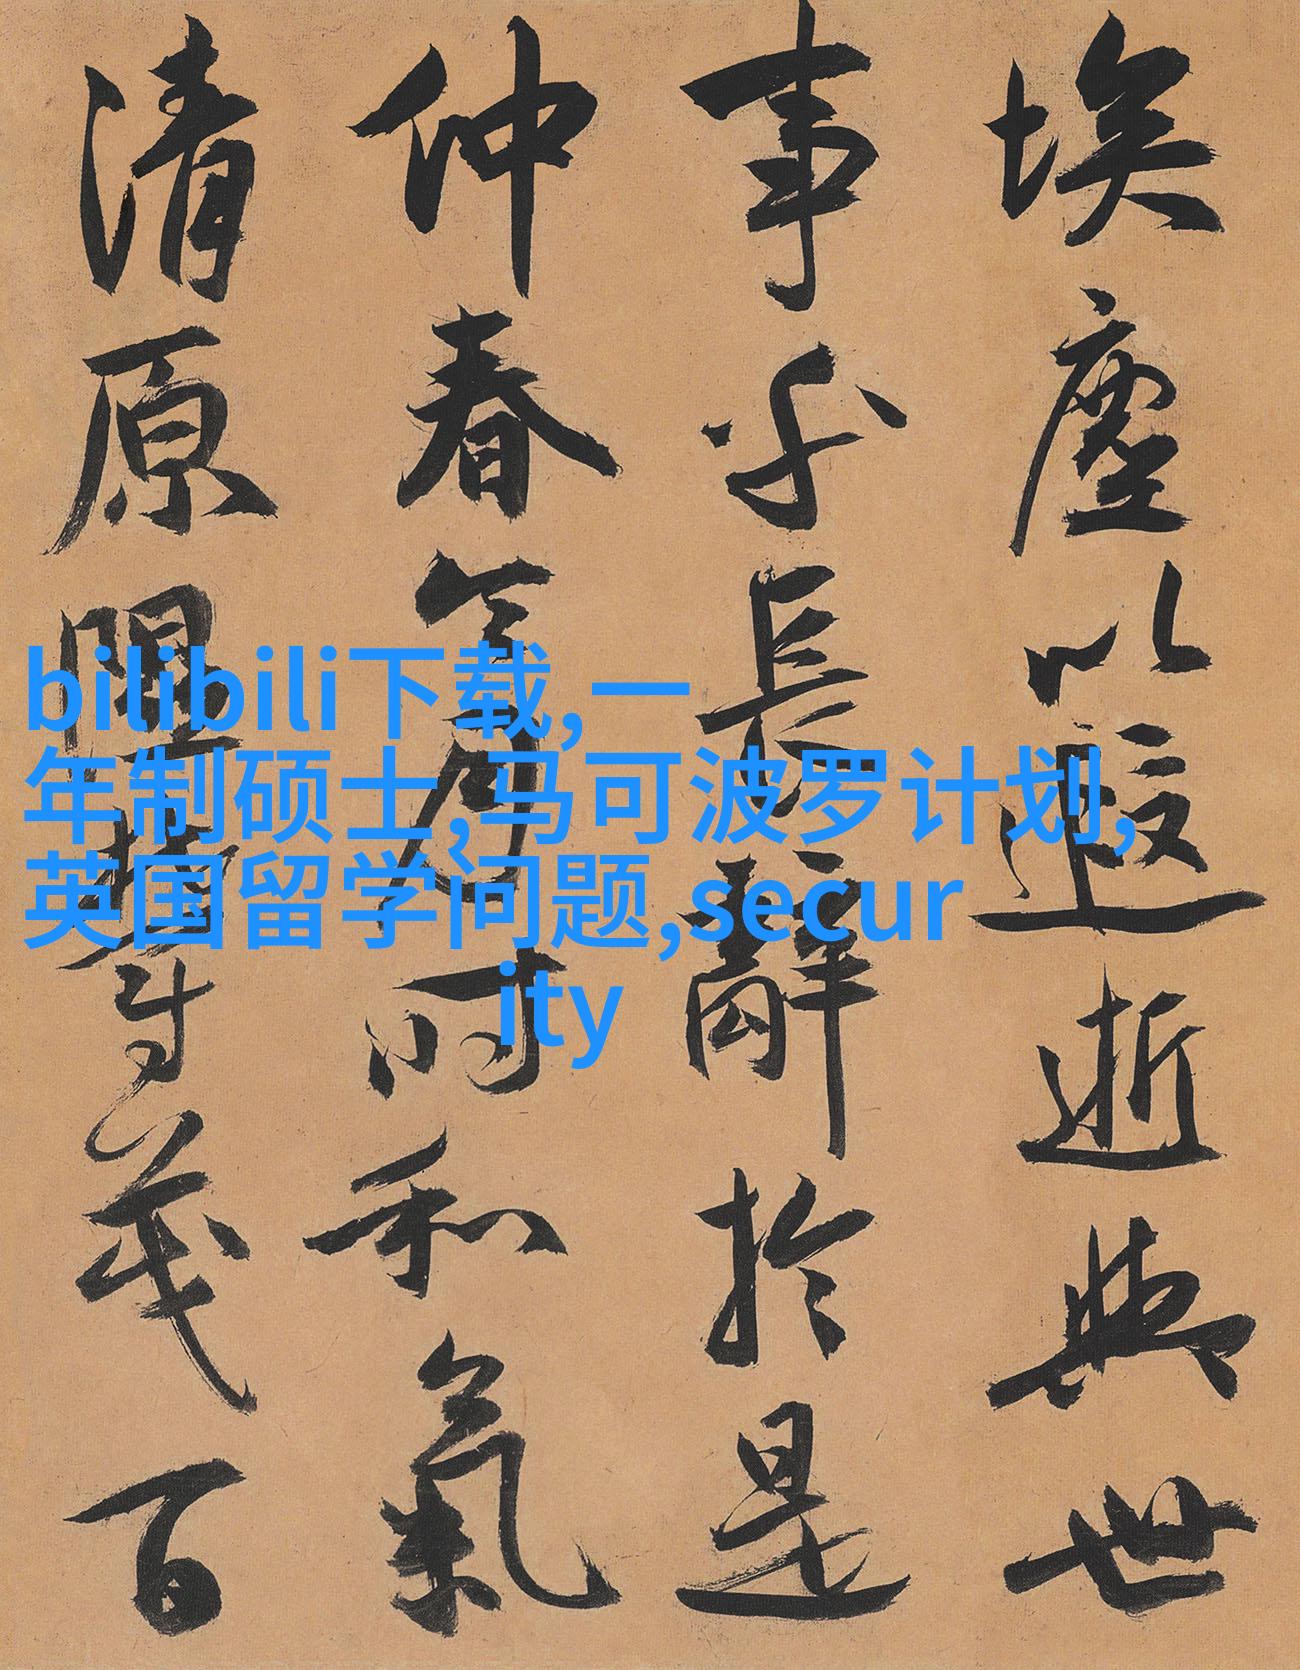 埃塵以遐逝與世
事乎長辭於是
仲春令月時和氣
清原隰鬱茂百
bilibili下载,一
年制硕士,马可波罗计划,
英国留学问题,secur
ity